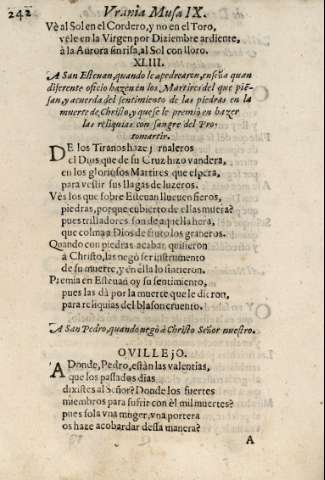 242 Vrania Musa IX.
Vè al Sol en el Cordero, y no en el Toro,
vele en la Virgen por Diziembre ardiente,
à la Aurora sin risa, al Sol con lloro.
XLIII.
A San Esteuan, quando le apedrearon, enseña quan
diferente oficio hazen en los Martires del que pien
san, y acuerda del sentimiento de las piedras en la
muerte de Christo, y que se le premiò en hazer
las reliquias con sangre del Pro-
tomartir.
DE los Tiranos haze jornaleros
el Dios que de su Cruz hizo vandera,
en los gloriosos Martires que espera,
para vestir sus llagas de luzeros.
Vès los que sobre Esteuan llueuen fieros,
piedras, porque cubierto de ellas muera?
pues trilladores son de aquella hera,
que colma a Dios de fruto los graneros.
Quando con piedras acabar quisieron
a Christo, las negò ser instrumento
de su muerte, y en ella lo sintieron.
Premia en Esteuan oy su sentimiento,
pues las dà por la muerte que le dieron,
para reliquias del blason cruento.
A San Pedro, quando negò à Christo Señor nuestro.
OVILLEJO.
ADonde, Pedro, estàn las valentias,
que los passados dias
dixistes al Señor? Donde los fuertes
miembros para sufrir con èl mil muertes?
pues sola vna muger, vna portera
os haze acobardar dessa manera?
A